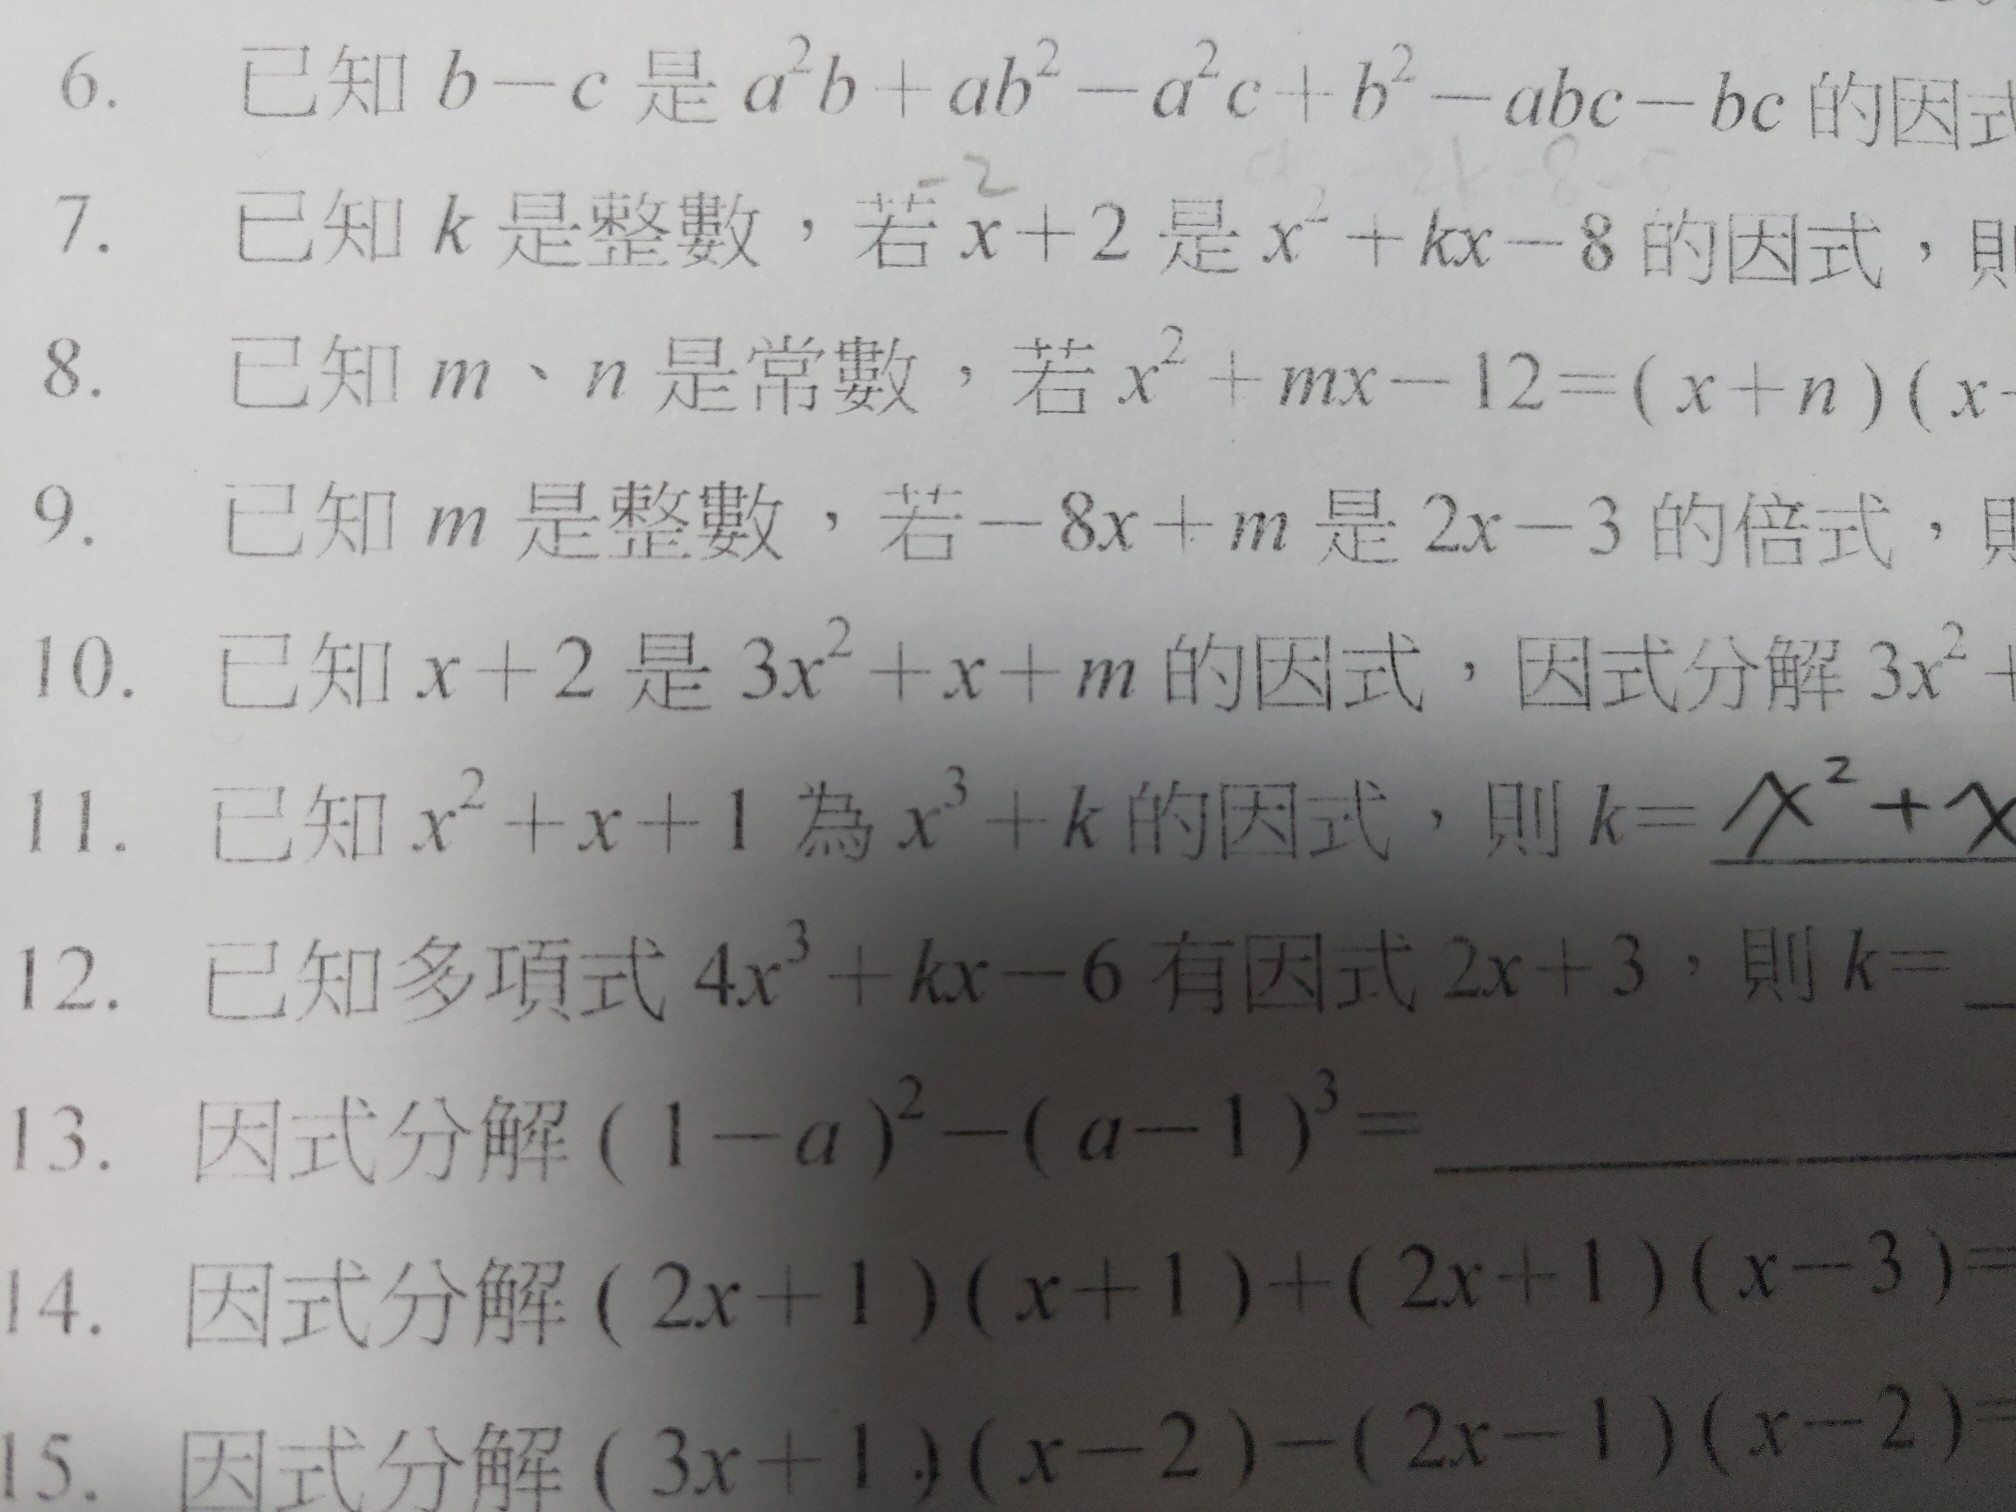 6. 已知 b－c 是 a²b＋ab²－a²c＋b²－abc－bc 的因式
-2
7. 已知 k 是整數，若 x＋2 是 x²＋kx－8 的因式，則
8. 已知 m、n 是常數，若 x²＋mx－12＝(x＋n)(x
9. 已知 m 是整數，若－8x＋m 是 2x－3 的倍式，則
10. 已知 x＋2 是 3x²＋x＋m 的因式，因式分解 3x²＋
11. 已知 x²＋x＋1 為 x³＋k 的因式，則 k＝ x²+x
12. 已知多項式 4x³＋kx－6 有因式 2x＋3，則 k＝
13. 因式分解(1－a)²－(a－1)³＝
14. 因式分解(2x＋1)(x＋1)＋(2x＋1)(x－3)＝
15. 因式分解(3x＋1)(x－2)－(2x－1)(x－2)＝